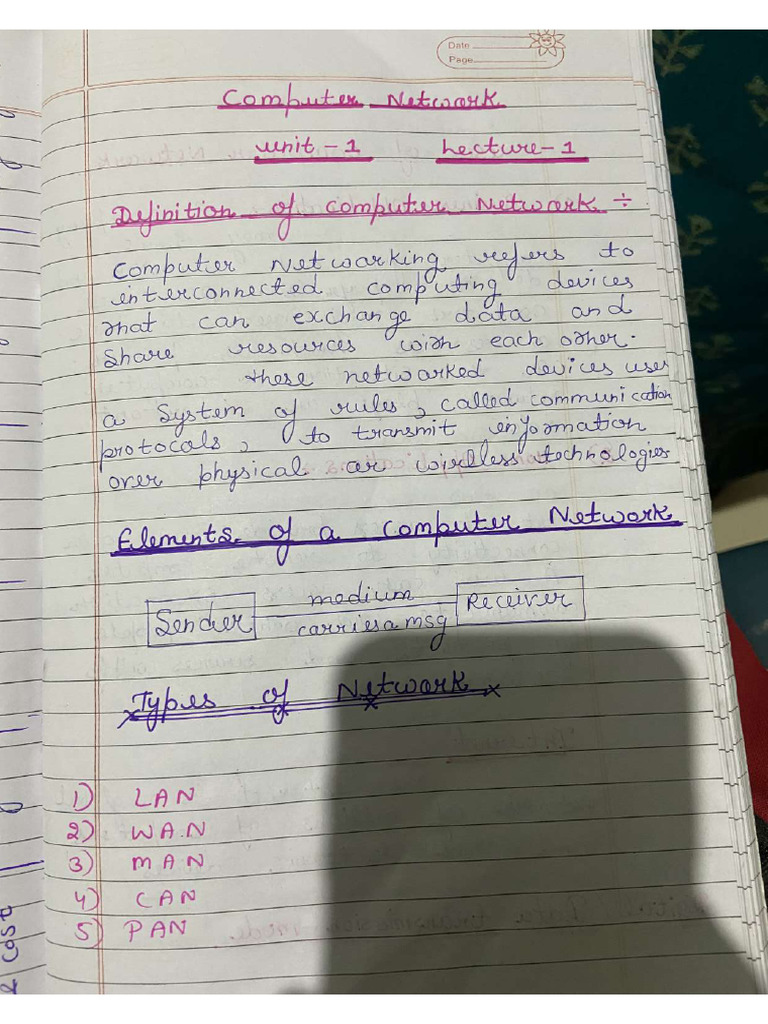 Date
Page
Computer Network
unit-1 Lecture-1
Definition of computer Network ÷
Computer Networking refers to
interconnected computing devices
that can exchange data and
Share resources with each other.
these networked devices uses
a System of rules, called communication
protocols, to transmit information
over physical or wireless technologies
Elements of a computer Network
Sender medium Receiver
carries a msg
Types of Network
1) LAN
2) WA.N
3) MAN
4) CAN
5) PAN
cost